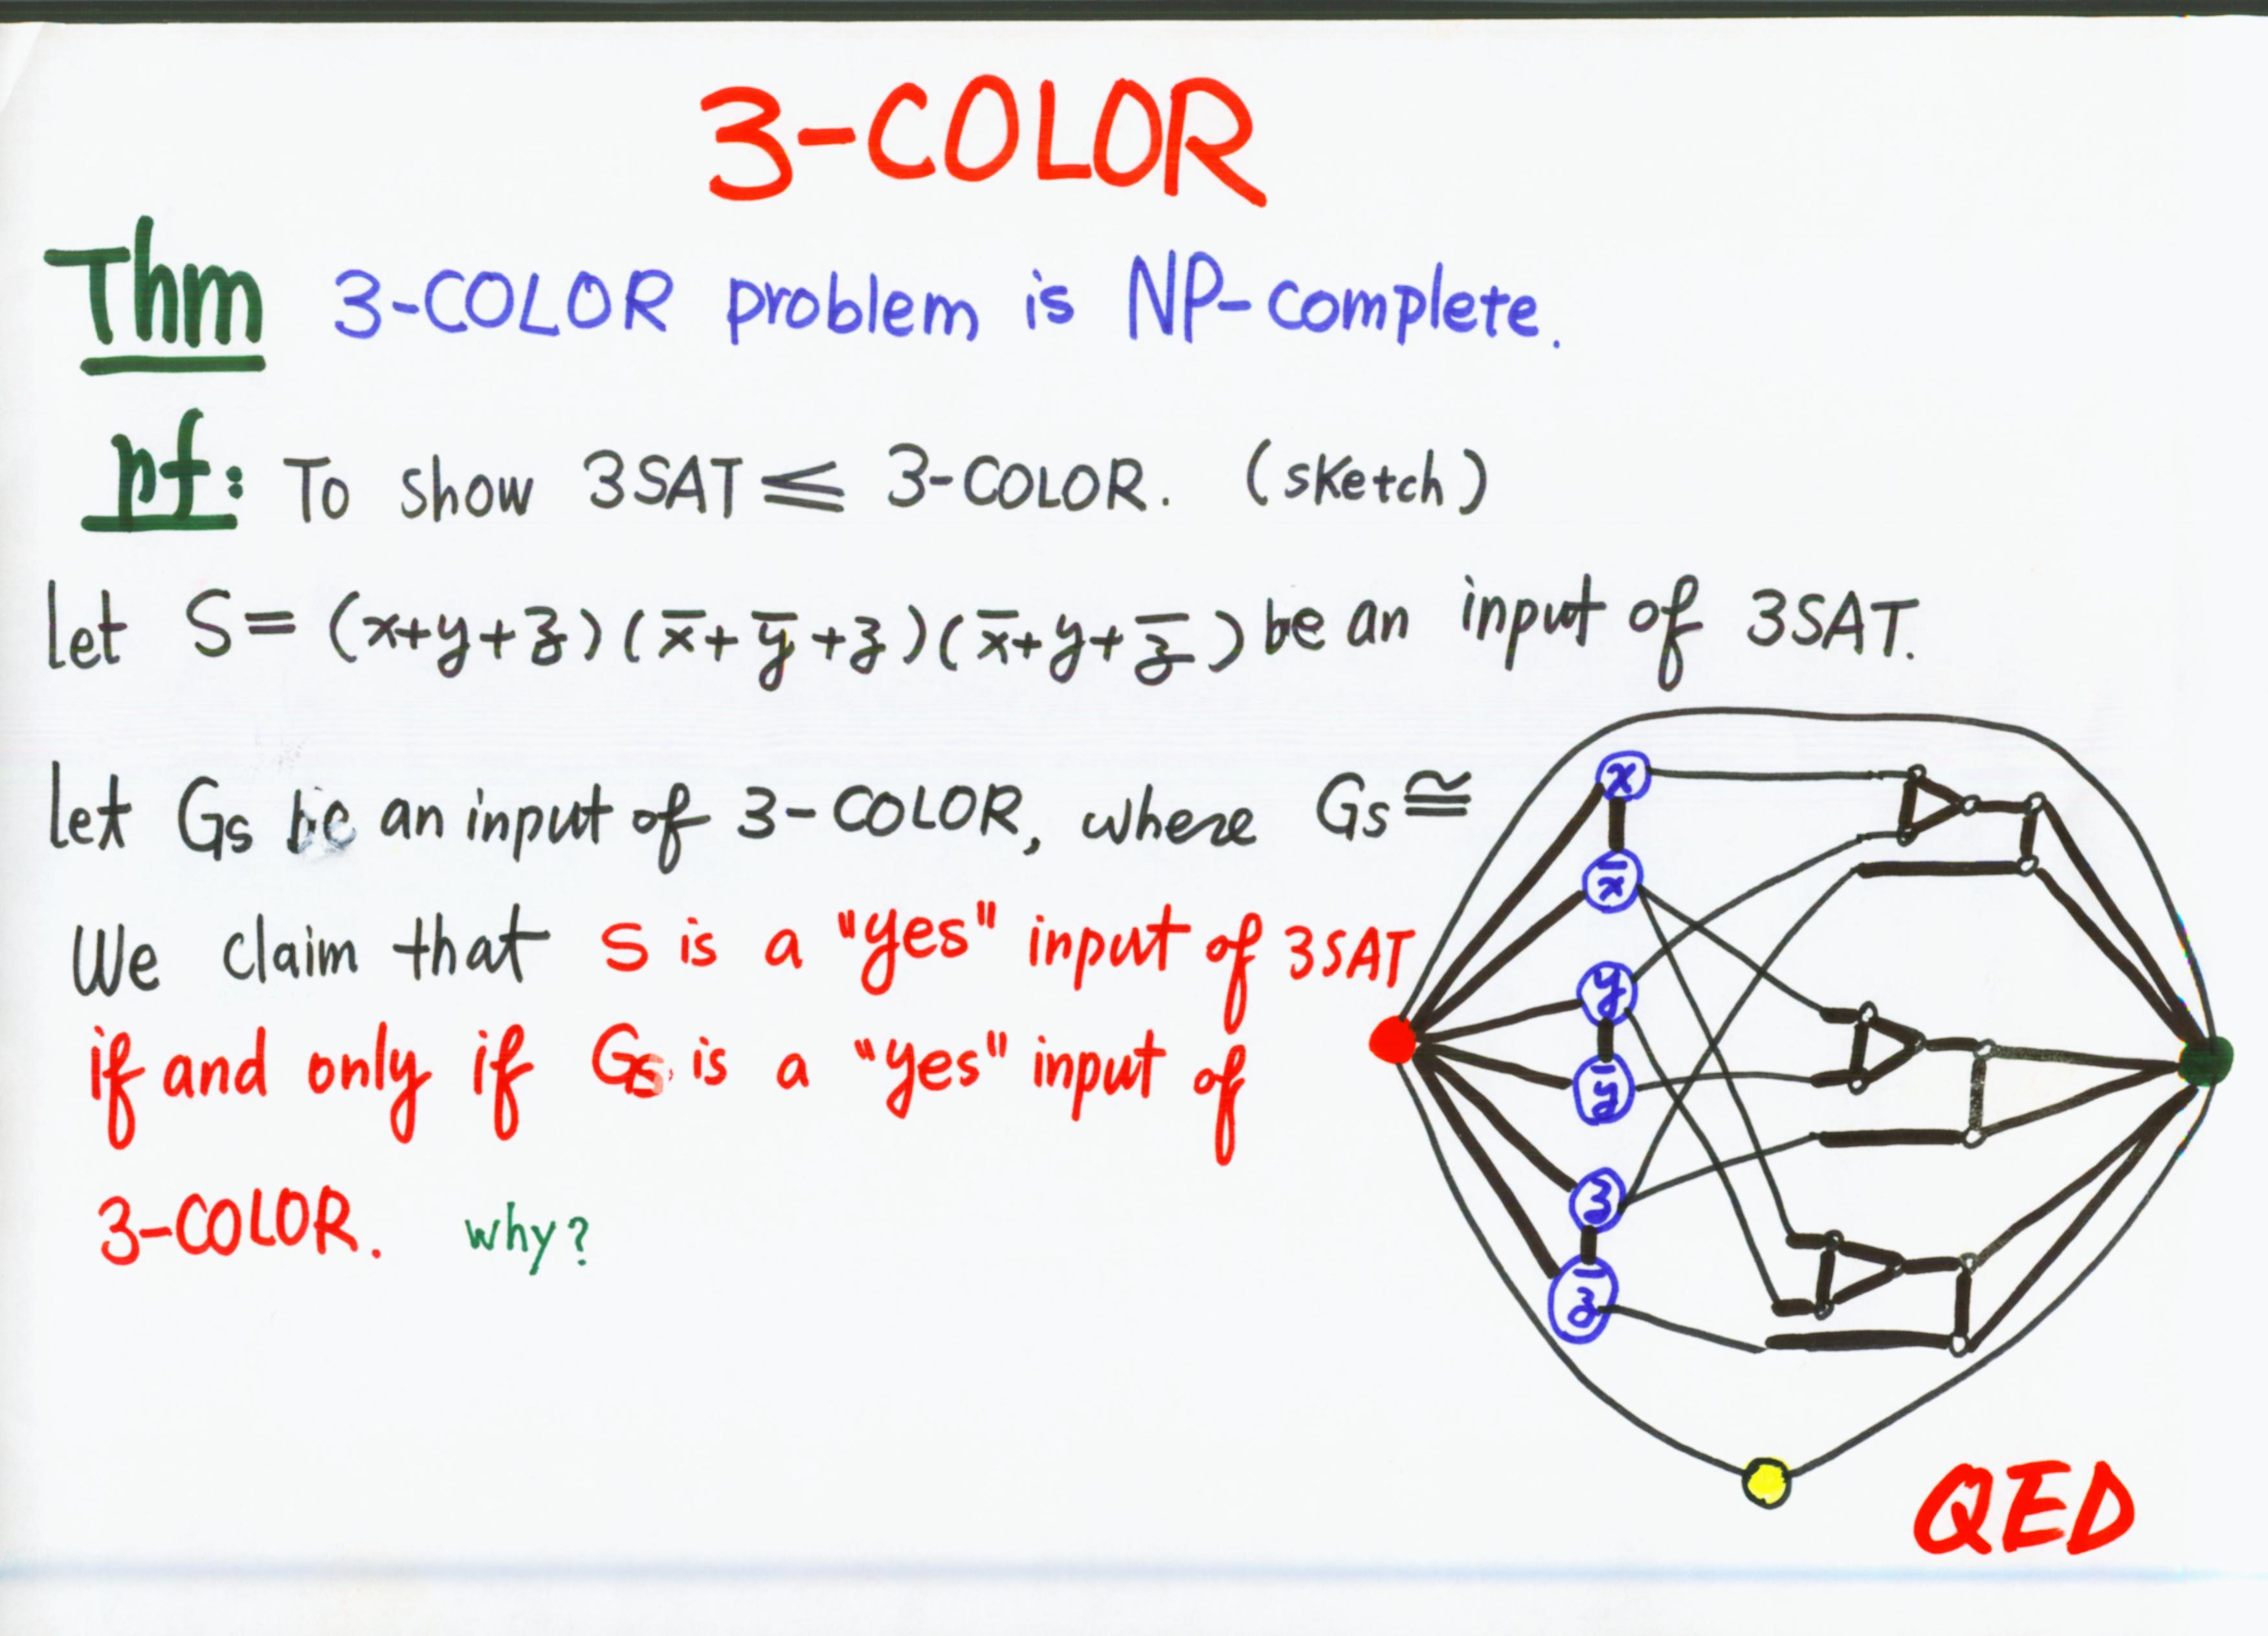 3-COLOR
Thm 3-COLOR problem is NP-complete.
pf: To show 3SAT ≤ 3-COLOR. (sketch)
let S= (x+y+z)(x̅+y̅+z)(x̅+y+z̅) be an input of 3SAT.
let Gs be an input of 3-COLOR, where Gs ≅
We claim that S is a "yes" input of 3SAT
if and only if Gs is a "yes" input of
3-COLOR. why?
x
x̅
y
y̅
z
z̅
QED